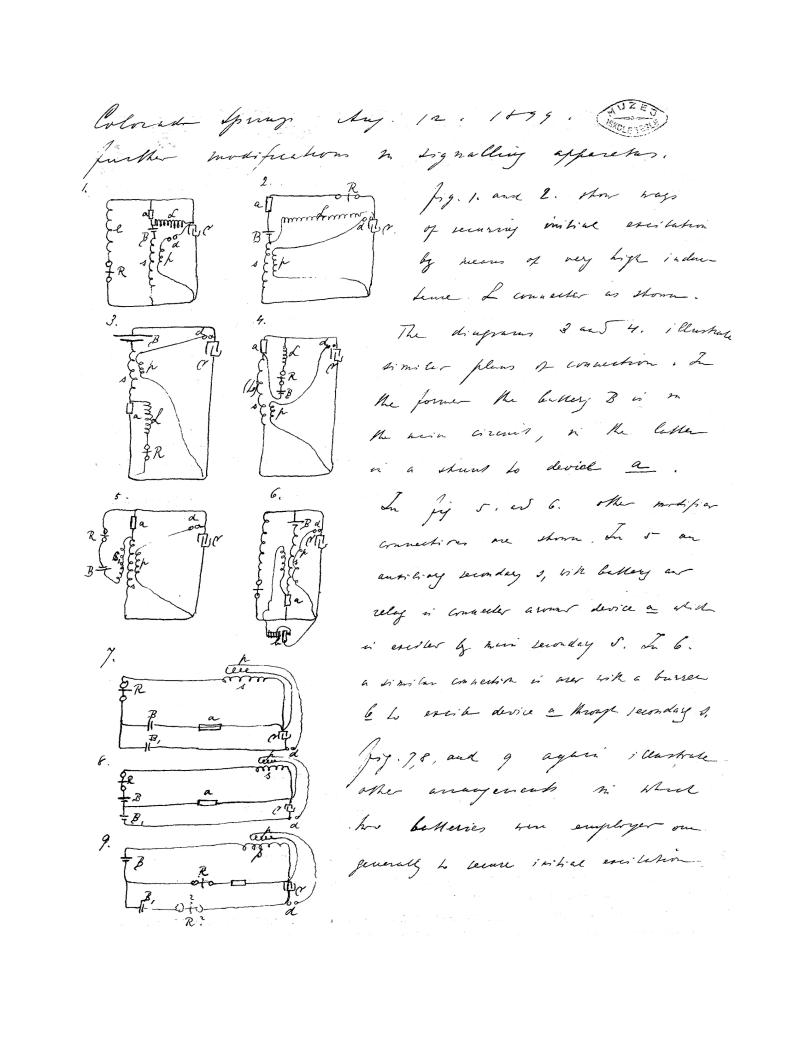 Colorado Springs Aug. 12. 1899.
MUZEJ
NIKOLE TESLE
further modifications in signalling apparatus.
1.
a L
l B d c
s p
R
2.
R
a L
B d c
s p
Fig. 1. and 2. show ways
of securing initial excitation
by means of very high induc-
tance L connected as shown.
3.
B d
p c
s
a L
R
4.
a L d
R c
B
s p
The diagrams 3 and 4. illustrate
similar plans of connection. In
the former the battery B is in
the main circuit, in the latter
in a shunt to device a.
5.
R a d
c
B s, p
s
6.
B d
c
s p
a
b
In fig 5. and 6. other modified
connections are shown. In 5 an
auxiliary secondary s, with battery and
relay is connected around device a which
is excited by main secondary S. In 6.
a similar connection is used with a buzzer
b to excite device a through secondary s.
7.
p
s
R
B a
B, c
d
8.
p
s
R
B a c
B, d
9.
p
B
R
B, c
d
?
R?
Fig. 7, 8, and 9 again illustrate
other arrangements in which
two batteries were employed one
generally to secure initial excitation